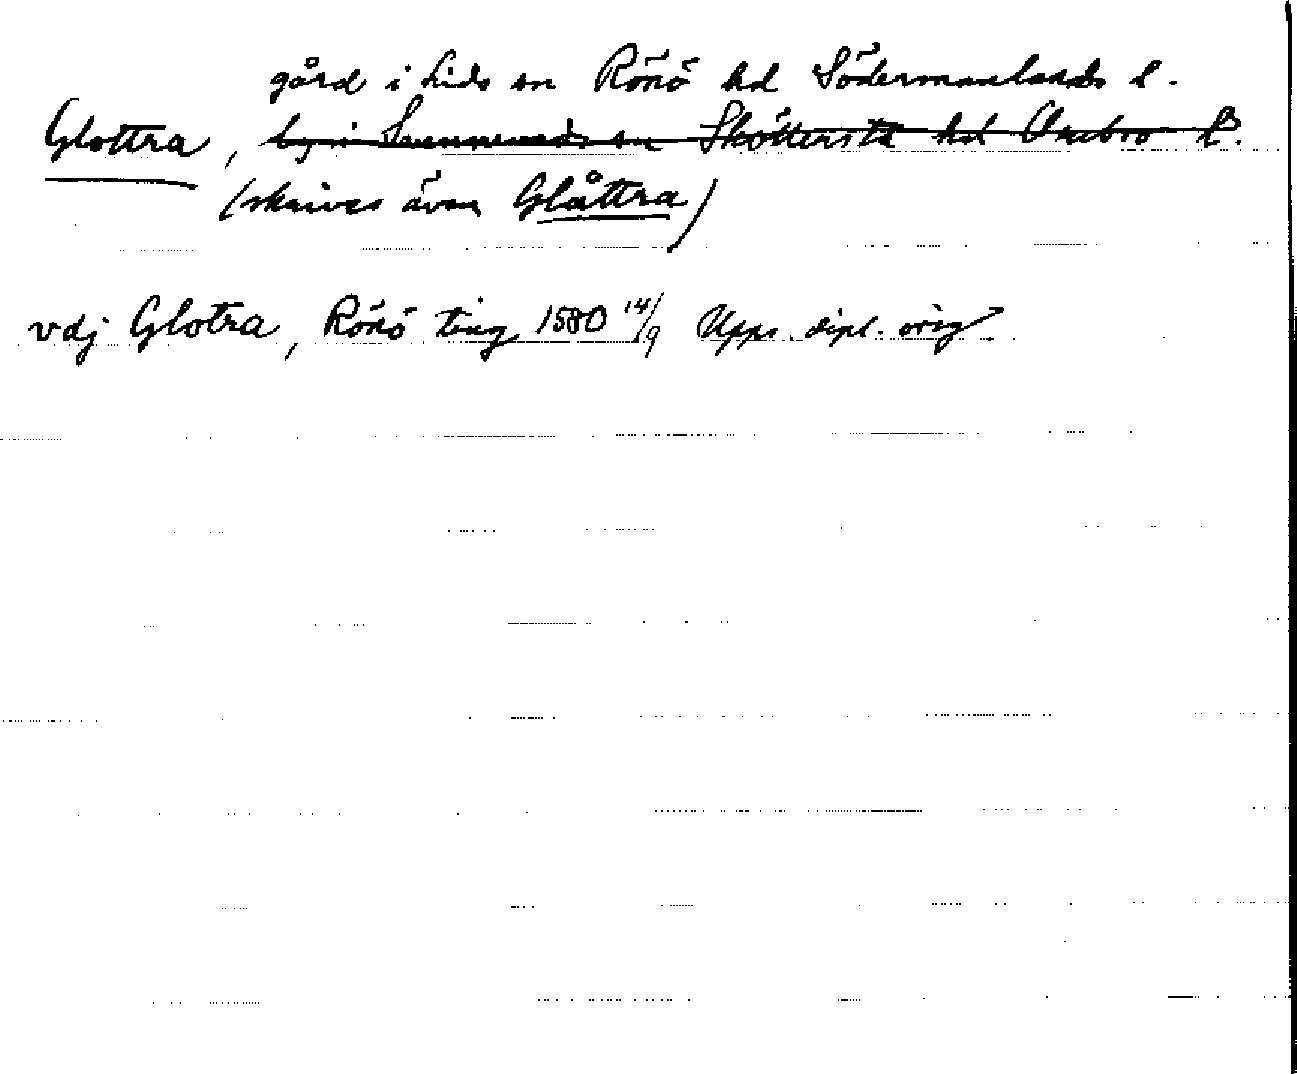 gård i Lids sn Rönö hd Södermanlands l.
Glottra, by i Svennevads sn Sköllersta hd Örebro l.
(skrives även Glåttra)
vdj Glotra, Rönö ting 1580 14/9 Upps. dipl. orig